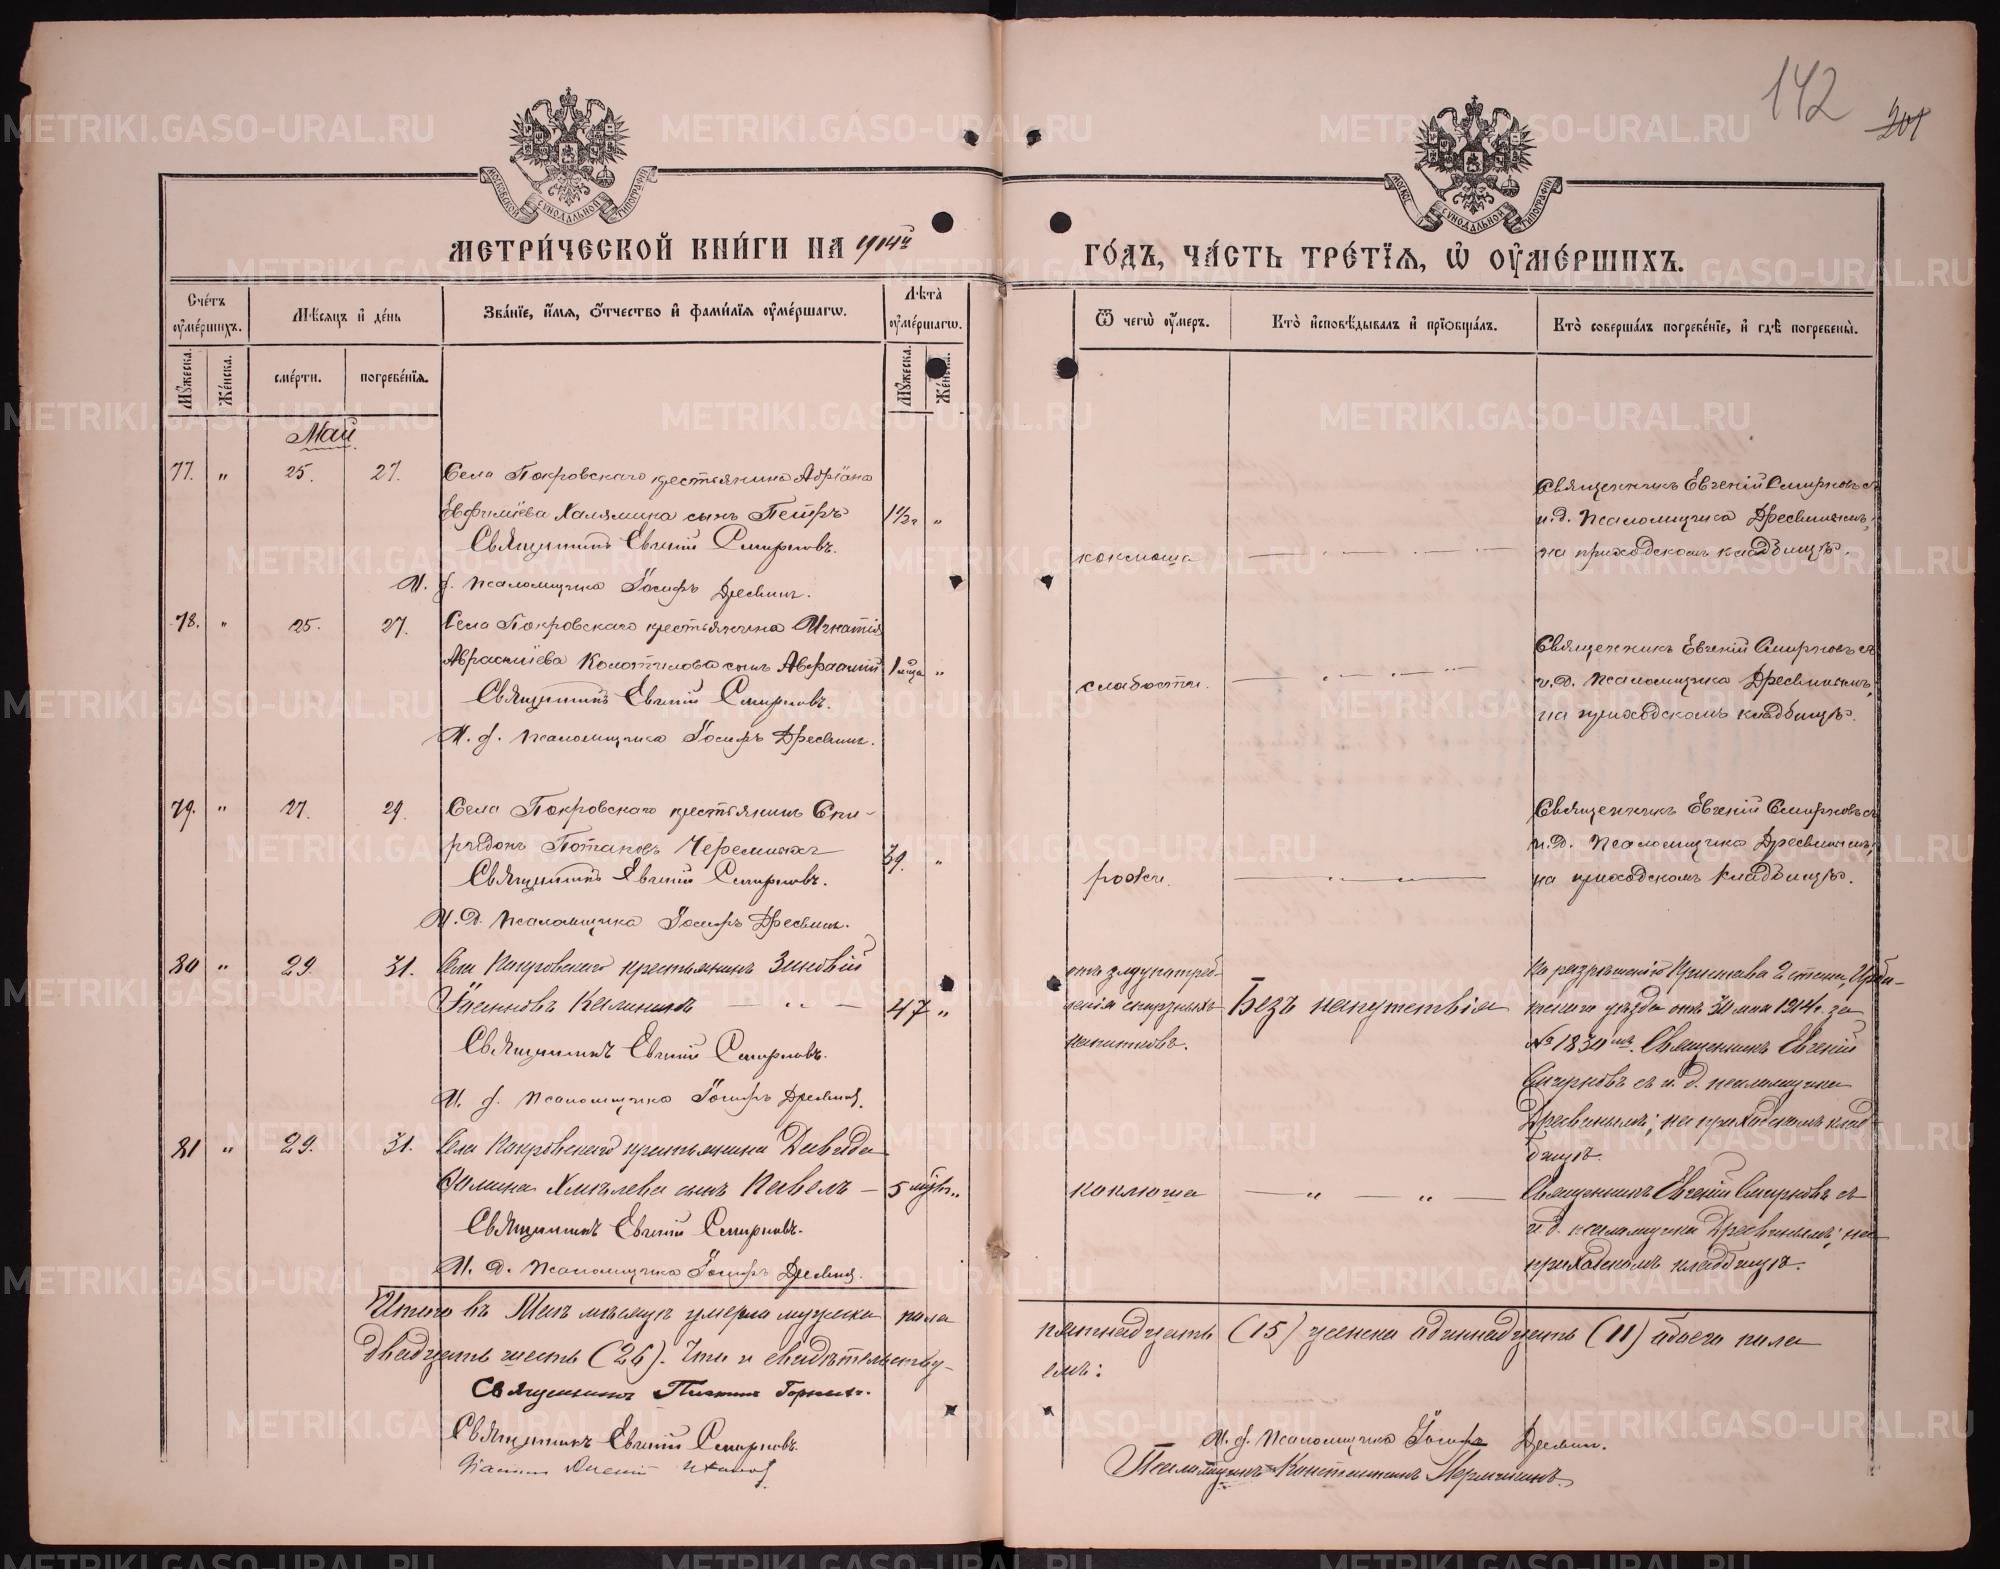 142
201
МОСКОВСКОЙ СУНОДАЛЬНОЙ ТИПОГРАФІИ
МЕТРИ́ЧЕСКОЙ КНИ́ГИ НА 1914й ГО́ДЪ, ЧА́СТЬ ТРЕ́ТІЯ, Ѽ ОУМЕ́РШИХЪ.
Сче́тъ оуме́ршихъ.
Мꙋжеска.
Же́нска.
Мѣ́сяцъ и де́нь
сме́рти.
погребе́нія.
Зва́ніе, и́мя, о́тчество и фами́лія оуме́ршагѡ.
Лѣ́та оуме́ршагѡ.
Мꙋжеска.
Же́нска.
Ѿ чегѡ̀ оу́меръ.
Кто̀ исповѣ́дывалъ и пріѡбща́лъ.
Кто̀ соверша́лъ погребе́ніе, и гдѣ̀ погребены̀.
Май
77. " 25. 27. Села Покровскаго крестьянина Адріана
Евфиміева Халямина сынъ Петръ 1 1/2 г "
Священникъ Евгеній Смирновъ.
И. д. псаломщика Іосифъ Дресвинъ.
коклюша
Священникъ Евгеній Смирновъ съ
и.д. псаломщика Дресвинымъ;
на приходскомъ кладбищѣ.
78. " 25. 27. Села Покровскаго крестьянина Игнатія
Авраамiева Колотилова сынъ Авраамій 1 мѣсяца "
Священникъ Евгеній Смирновъ.
И. д. псаломщика Іосифъ Дресвинъ.
слабости.
Священникъ Евгеній Смирновъ съ
и.д. псаломщика Дресвинымъ;
на приходскомъ кладбищѣ.
79. " 27. 29. Села Покровскаго крестьянинъ Спи-
ридонъ Потаповъ Черемныхъ 39. "
Священникъ Евгеній Смирновъ.
И. д. псаломщика Іосифъ Дресвинъ.
рожи.
Священникъ Евгеній Смирновъ съ
и.д. псаломщика Дресвинымъ;
на приходскомъ кладбищѣ.
80 " 29. 31. Села Покровскаго крестьянинъ Зиновій
Калининъ 47 "
Священникъ Евгеній Смирновъ.
И. д. псаломщика Іосифъ Дресвинъ.
отъ злоупотреб-
ленія спиртныхъ
напитковъ.
Безъ напутствія
По разрѣшенію Пристава 2 стана, Ирби-
тскаго уѣзда отъ 30 мая 1914 г. за
№ 1834мъ. Священникъ Евгеній
Смирновъ съ и. д. псаломщика
Дресвинымъ; на приходскомъ клад-
бищѣ.
81 " 29. 31. Села Покровскаго крестьянина Давида
Хмѣлева сынъ Павелъ 5 "
Священникъ Евгеній Смирновъ.
И. д. псаломщика Іосифъ Дресвинъ.
коклюша
Священникъ Евгеній Смирновъ съ
и д. псаломщика Дресвинымъ; на
приходскомъ кладбищѣ.
Итого въ Маѣ мѣсяцѣ умерло мужска пола пятнадцать (15) женска одиннадцать (11) обоего пола
двадцать шесть (26). Что и свидѣтельству-емъ:
Священникъ
Священникъ Евгеній Смирновъ.
И. д. псаломщика Іосифъ Дресвинъ.
Псаломщикъ Константинъ
METRIKI.GASO-URAL.RU